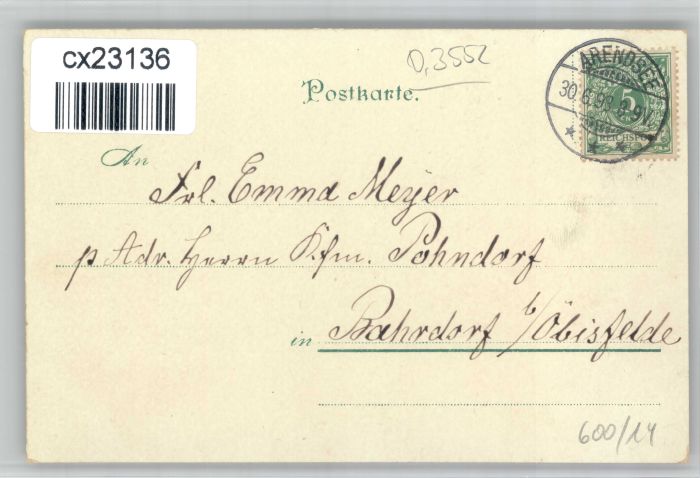 cx23136
0,3552
Postkarte.
ARENDSEE
30.6.98.
5
REICHSPOST
An
Frl. Emma Meyer
p Adr. Herrn Kfm. Pohndorf
in Bahrdorf b/Öbisfelde
600/14